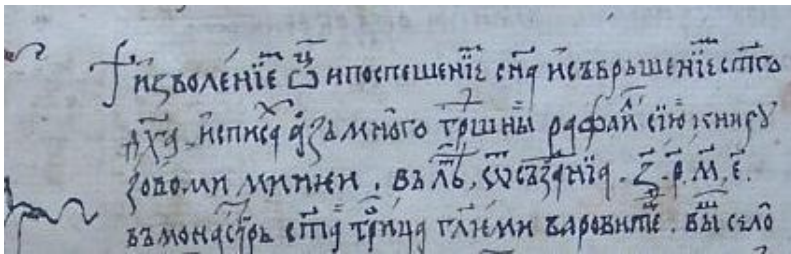 † Изволенїе ѿц и поспешенїе сн҃а и съвръшенїе ст҃го
дх҃а исписа азъ многогрѣшны рафаил сїю книгу
зовоми минеи . въ лѣ , ѿ създанїа . ҂з . р . м . е .
въ монастирь ст҃а троица гл҃еми варовите . выи село